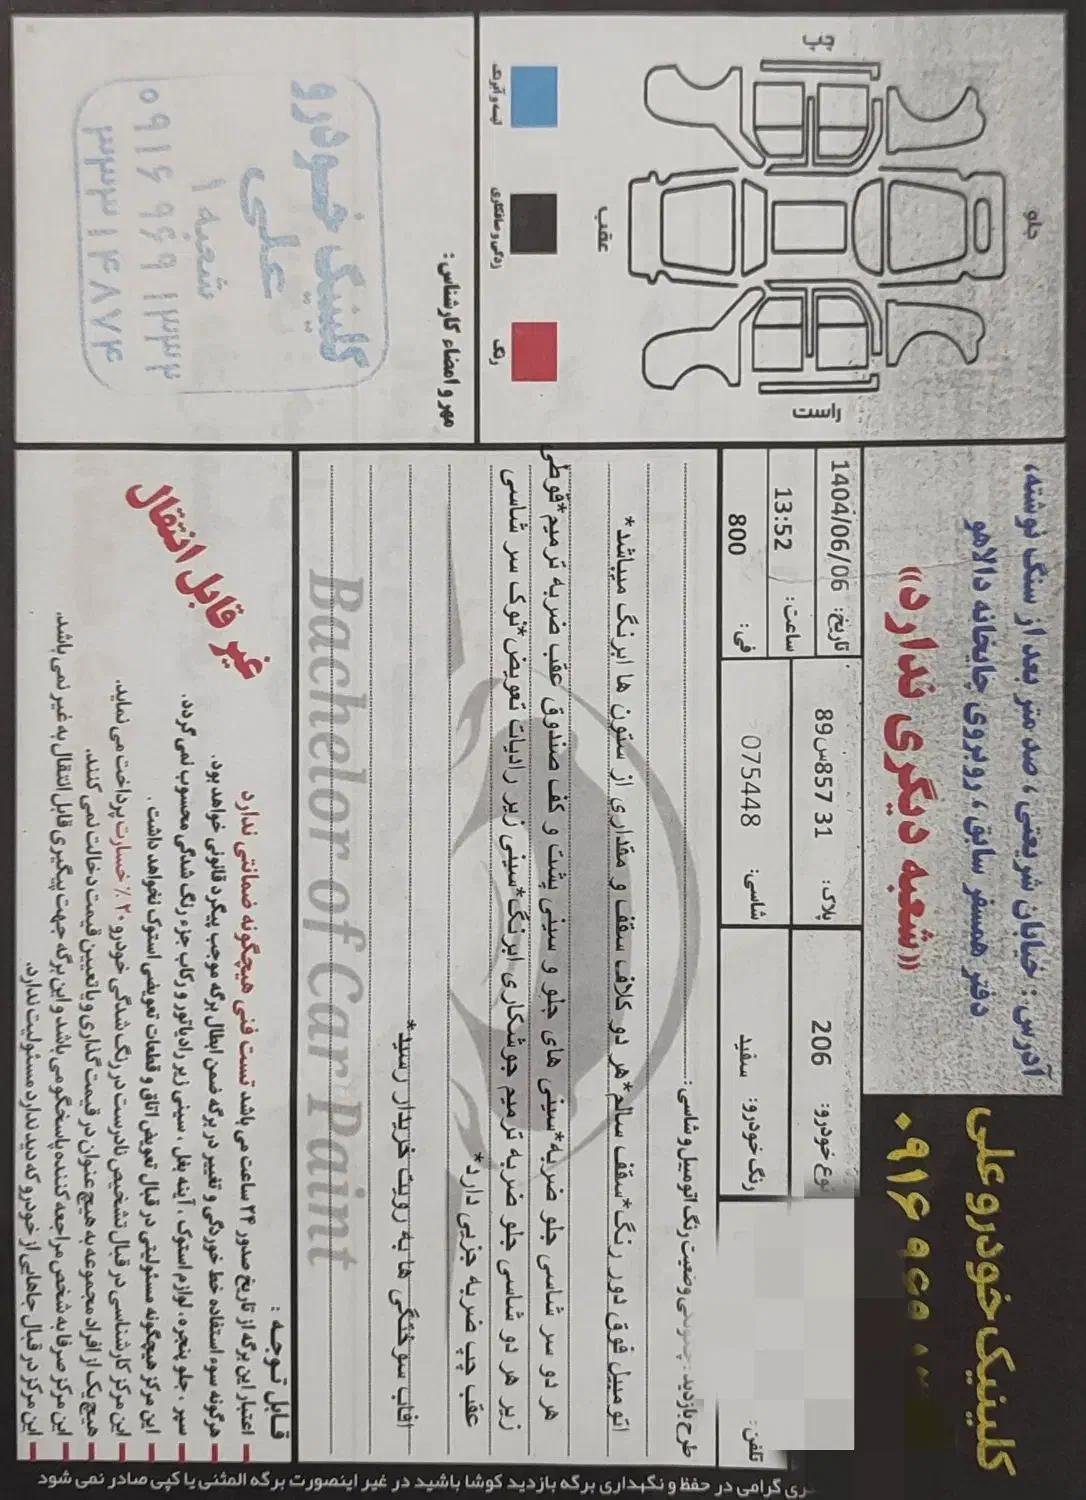 کلینیک خودرو علی
آدرس: خیابان شریعتی، صد متر بعد از سنگ نوشته،
دفتر همسفر سابق، روبروی چاپخانه دالاهو
«شعبه دیگری ندارد»
نوع خودرو: 206
پلاک: 31 857س89
تاریخ: 1404/06/06
ساعت: 13:52
تلفن:
رنگ خودرو: سفید
شاسی: 075448
فی: 800
طرح بازدید: وضعیت رنگ اتومبیل و شاسی:
اتومبیل فوق دور رنگ*سقف سالم*هر دو کلاف سقف و مقداری از ستون ها ابرنگ میباشد*
هر دو سر شاسی جلو ضربه*سینی های جلو و سینی پشت و کف صندوق عقب ضربه ترمیم*قوطی
زیر هر دو شاسی جلو ضربه ترمیم جوشکاری ابرنگ*سینی زیر رادیات تعویض*نوک سر شاسی
عقب چپ ضربه جزیی دارد*
افتاب سوختگی ها به رویت خریدار رسید*
Bachelor of Car Paint
چپ
جلو
عقب
راست
لیسه و آبرنگ
زدگی و صافکاری
رنگ
مهر و امضاء کارشناس:
کلینیک خودرو
علی
شعبه ۱
۰۹۱۶۹۶۹۱۳۳۲
۳۳۳۱۴۸۷۴
قابل توجه:
غیر قابل انتقال
اعتبار این برگه از تاریخ صدور ۲۴ ساعت می باشد تست فنی هیچگونه ضمانتی ندارد
هرگونه سوء استفاده خط خوردگی و تغییر در برگه ضمن ابطال برگه موجب پیگرد قانونی خواهد بود.
سپر، جلو پنجره، لوازم استوک، آینه بغل، سینی زیر رادیاتور و رکاب جزء رنگ شدگی محسوب نمی گردد.
این مرکز هیچگونه مسئولیتی در قبال تعویض اتاق و قطعات تعویضی استوک نخواهد داشت.
این مرکز کارشناسی در قبال تشخیص نادرست در رنگ شدگی خودرو ۲۰٪ خسارت پرداخت می نماید.
هیچ یک از افراد مجموعه به هیچ عنوان در قیمت گذاری و یا تعیین قیمت دخالت نمی کنند.
این مرکز صرفا به شخص مراجعه کننده پاسخگو می باشد و این برگه جهت پیگیری قابل انتقال به غیر نمی باشد.
این مرکز در قبال جاهایی از خودرو که دید ندارد مسئولیت ندارد.
گرامی در حفظ و نگهداری برگه بازدید کوشا باشید در غیر اینصورت برگه المثنی یا کپی صادر نمی شود